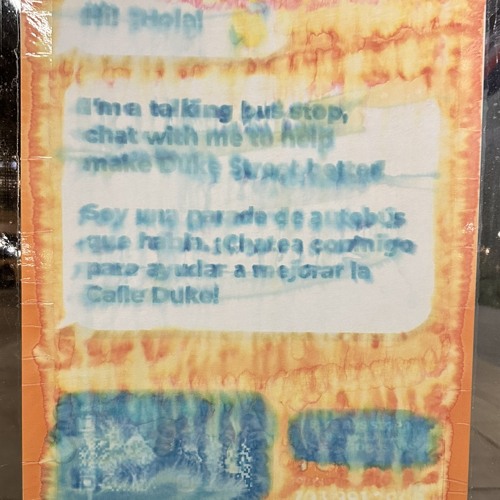 Hi! ¡Hola!
I'm a talking bus stop,
chat with me to help
make Duke Street better!
Soy una parada de autobús
que habla. ¡Chatea conmigo
para ayudar a mejorar la
Calle Duke!